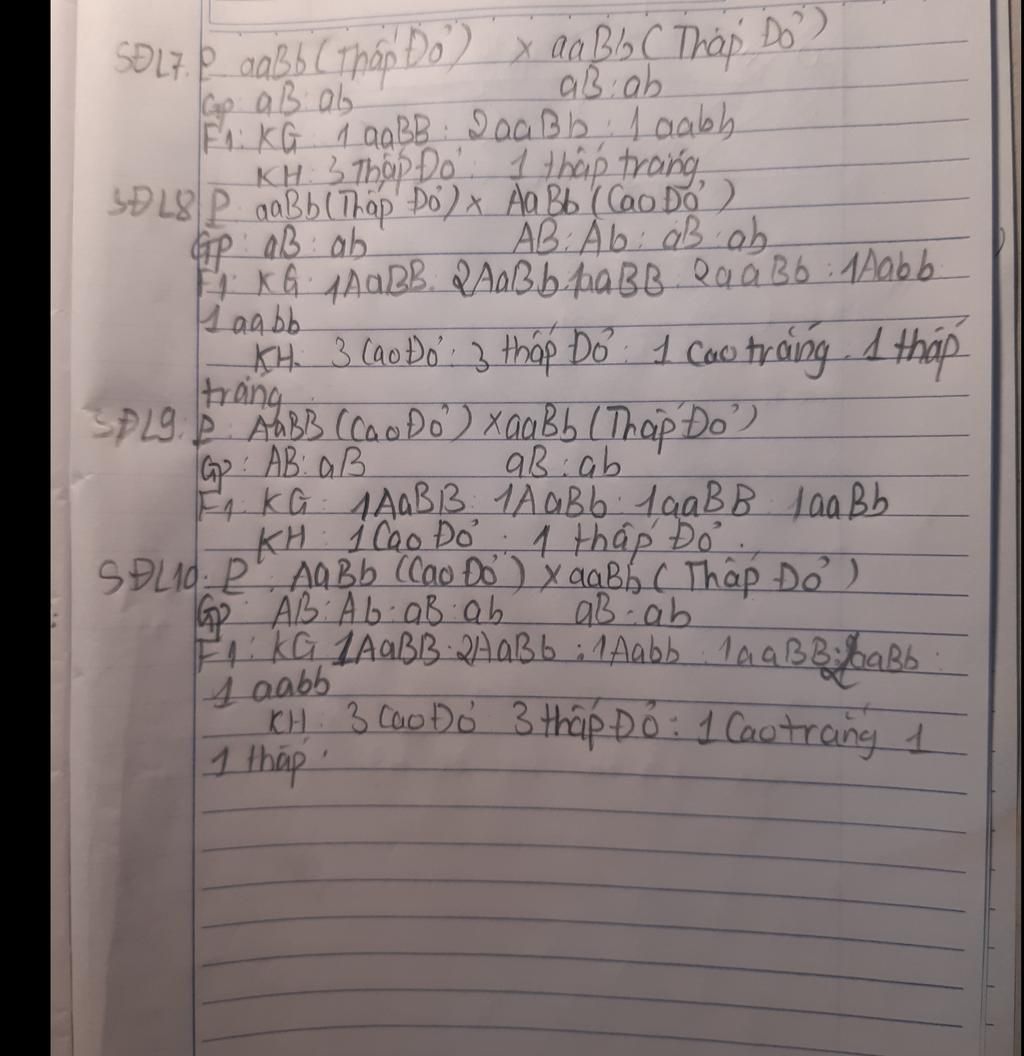 SĐL7. P aaBb (Thấp Đỏ) x aaBb (Thấp Đỏ)
Gp: aB : ab aB : ab
F1: KG: 1 aaBB : 2aaBb : 1 aabb
KH: 3 Thấp Đỏ : 1 thấp trắng
SĐL8 P. aaBb (Thấp Đỏ) x AaBb (Cao Đỏ)
Gp: aB : ab AB : Ab : aB : ab
F1: KG: 1AaBB : 2AaBb : 1aaBB : 2aaBb : 1Aabb
1 aabb
KH. 3 Cao Đỏ : 3 thấp Đỏ : 1 Cao trắng . 1 thấp
trắng
SĐL9: P: AaBB (Cao Đỏ) x aaBb (Thấp Đỏ)
Gp: AB : aB aB : ab
F1: KG: 1AaBB : 1AaBb : 1aaBB 1aaBb
KH: 1 Cao Đỏ : 1 thấp Đỏ .
SĐL10: P: AaBb (Cao Đỏ) x aaBb (Thấp Đỏ)
Gp: AB : Ab : aB : ab aB : ab
F1: KG 1AaBB : 2AaBb : 1Aabb : 1aaBB : 2aaBb :
1 aabb
KH: 3 Cao Đỏ 3 thấp Đỏ : 1 Cao trắng 1
1 thấp .